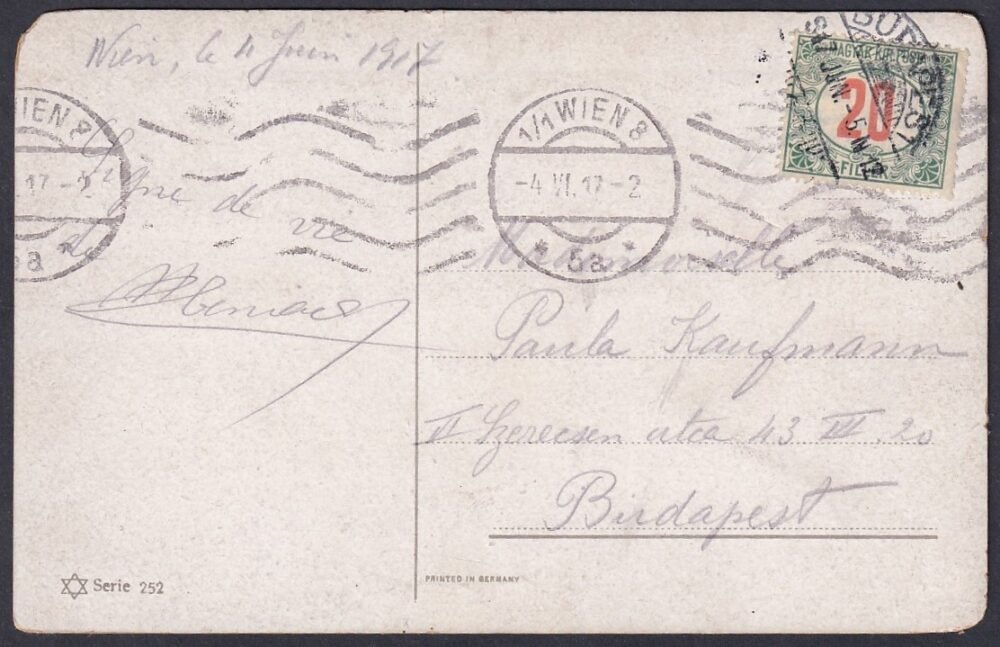 Wien, le 4 Juin 1917
IEN 8
17-2
5a
1/1 WIEN 8
-4.VI.17-2
* 5a *
BUDAPEST
MAGYAR KIR. POSTA
20
FILLÉR
Signe de vie
de
Mademoiselle
Paula Kaufmann
Szerecsen utca 43 III. 20
Budapest
Serie 252
PRINTED IN GERMANY